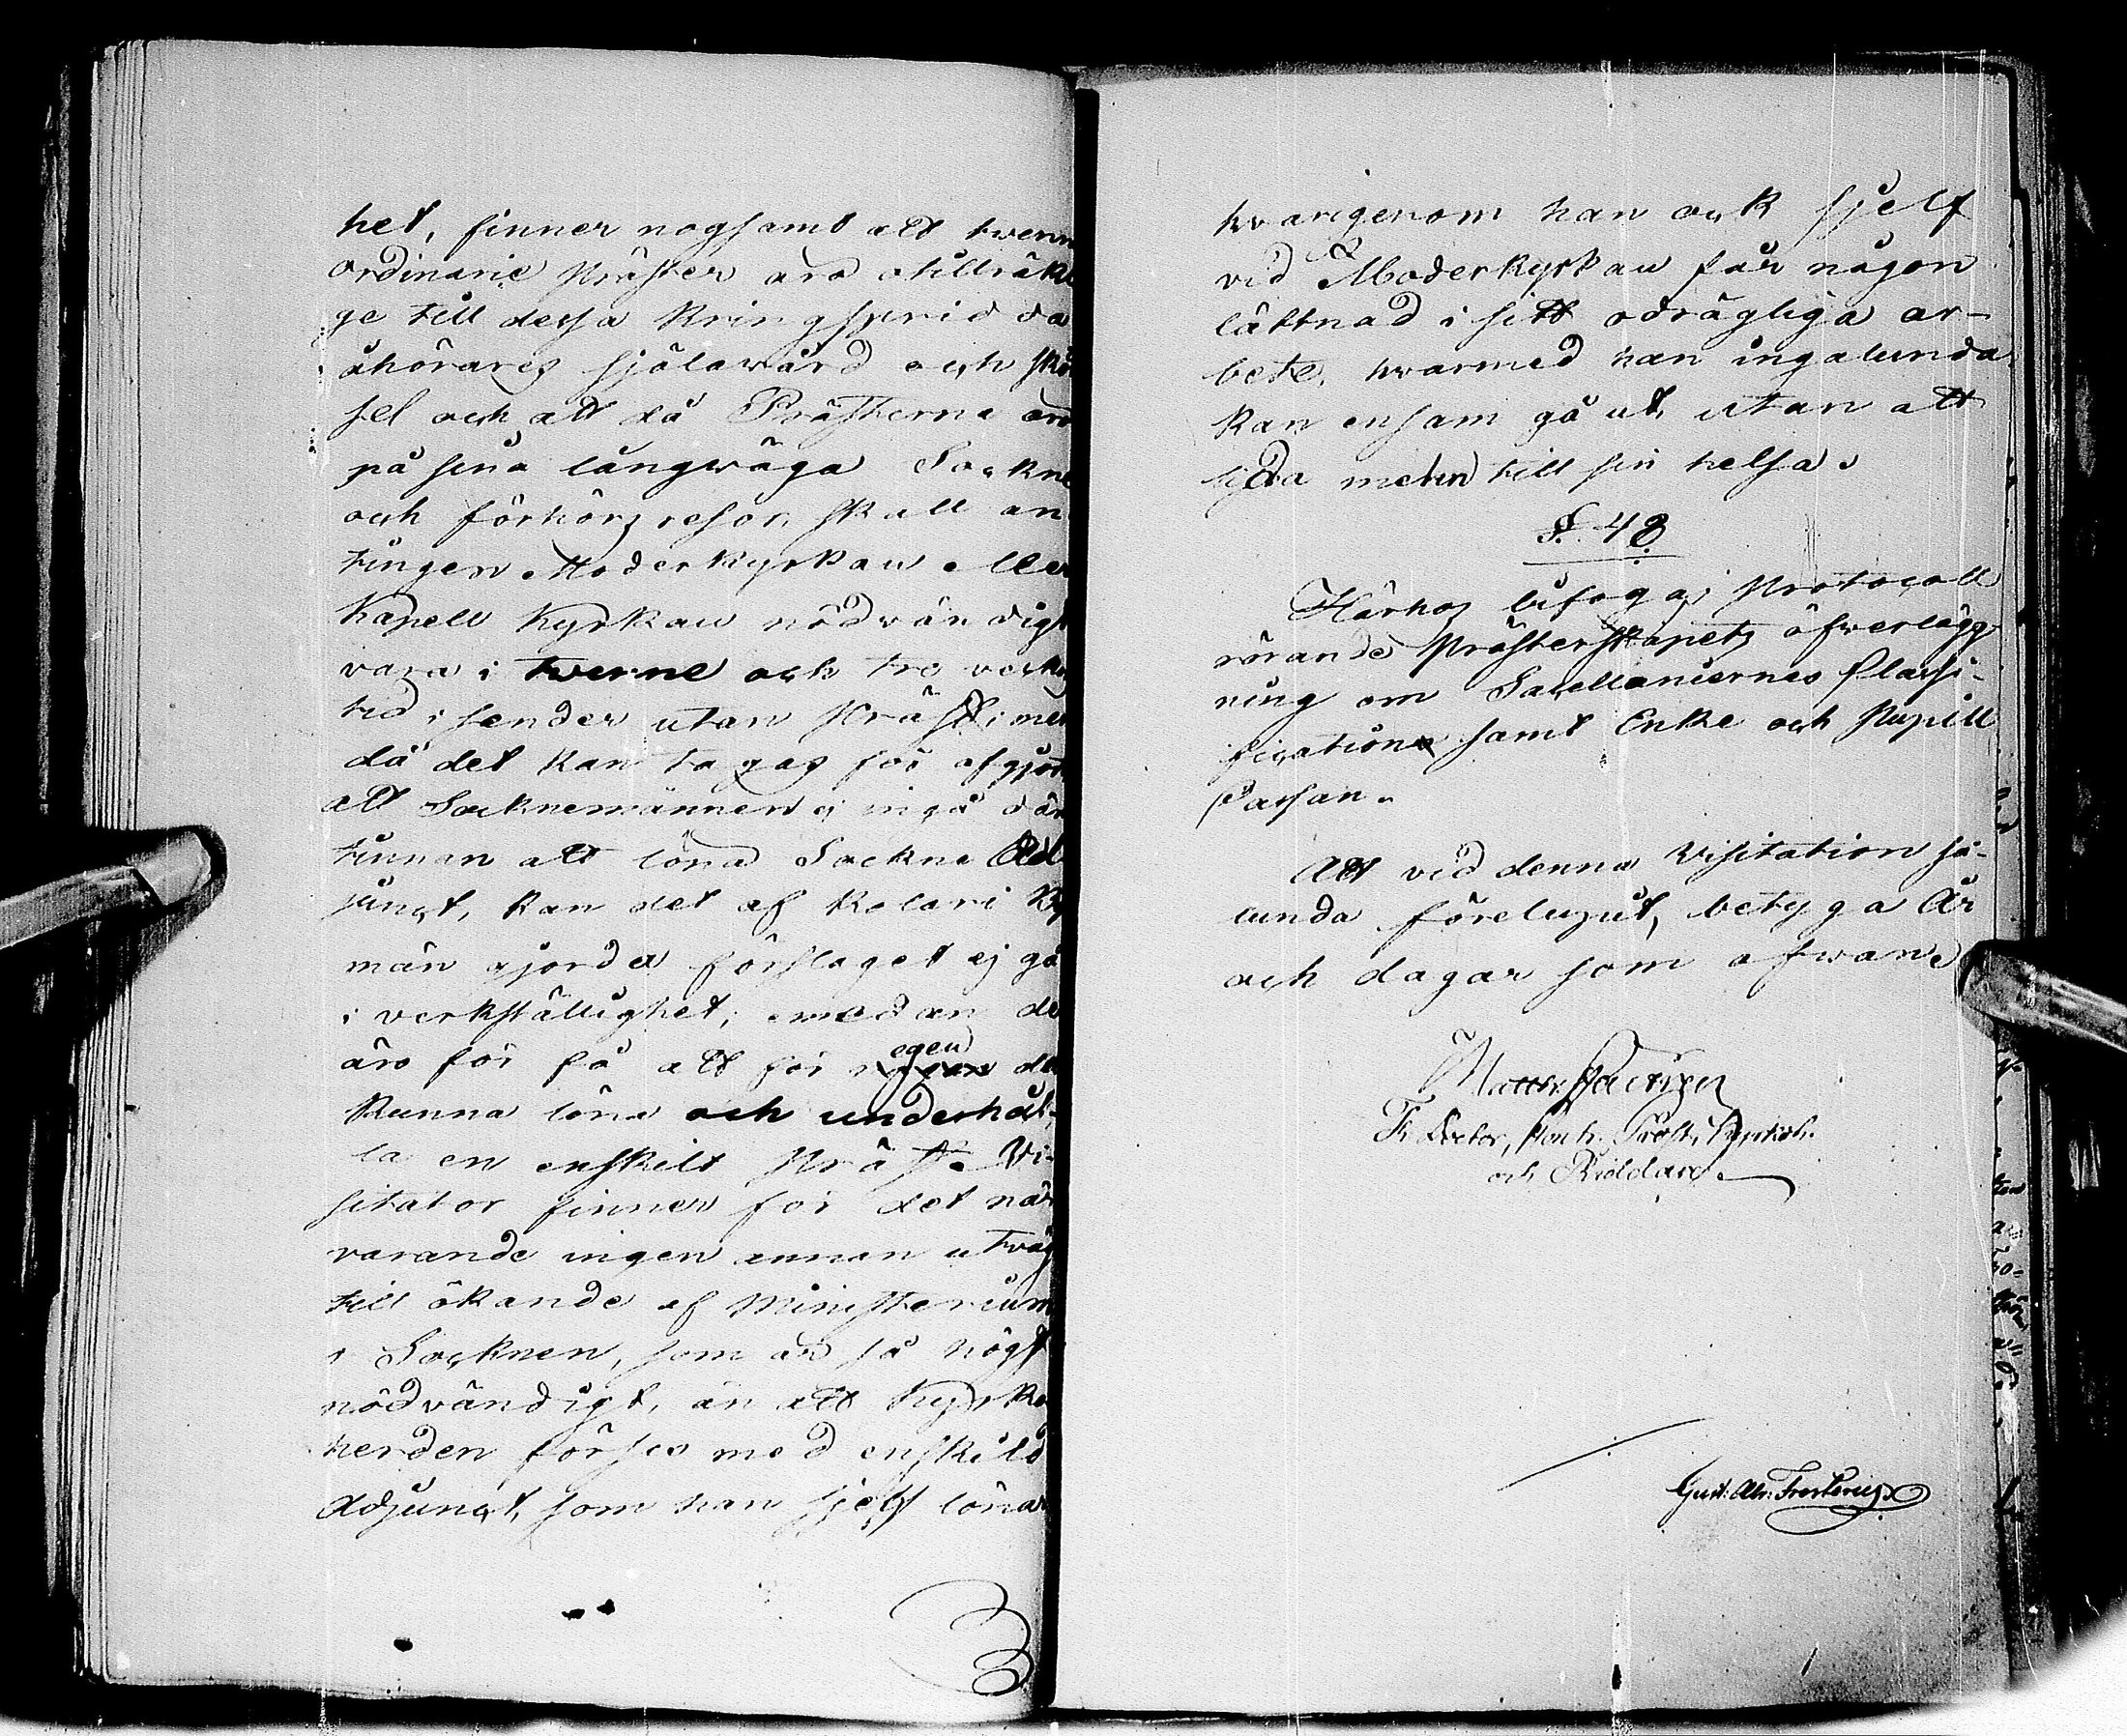 het, finner nogsamt att twenn
ordinarie Präster äro otillräkli
ge till dessa kringspridda
åhörares själavård och sköt
sel och att då Prästerna äro
på sina långwäga Sockne
och förhörs resor, skall an
tingen Moderkyrkan eller
Kapell Kyrkan nödvändigt
vara i twenne och tre veckors
tid i sender utan Präst; men
då det kan tagas för afgjort
att Socknemännen ej ingå där
tinnan att löna Sockne Ad
junct, kan det af Kolari By
män gjorda förslaget ej gå
i verkställighet; emedan de
äro för få att för egen del
kunna löna och underhål-
la en enskilt Präst. Vi-
sitator finner för det när
varande ingen annan utväg
till ökande af Ministerium
i Socknen, som är så högst
nödvändigt, än att Kyrko
herden förses med enskild
Adjunct, som han sjelf lönar
hvarigenom han ock sjelf
vid Moderkyrkan får någon
lättnad i sitt odrägliga ar-
bete, hvarmed han ingalunda
kan ensam gå ut, utan att
lida mehn till sin helsa.
§. 48.
Härhos bifogas Protocoll
rörande Prästerskapets öfverlägg
ning om Sacellaniernes Classi-
fication samt Enke och Pupill
Cassan.
Att vid denna Visitation så-
lunda förelupit, betyga År
och dagar som ofwan.
Th. Doctor, Cont. Prost, Kyrkoh.
och Riddare.
Gust. Abr.